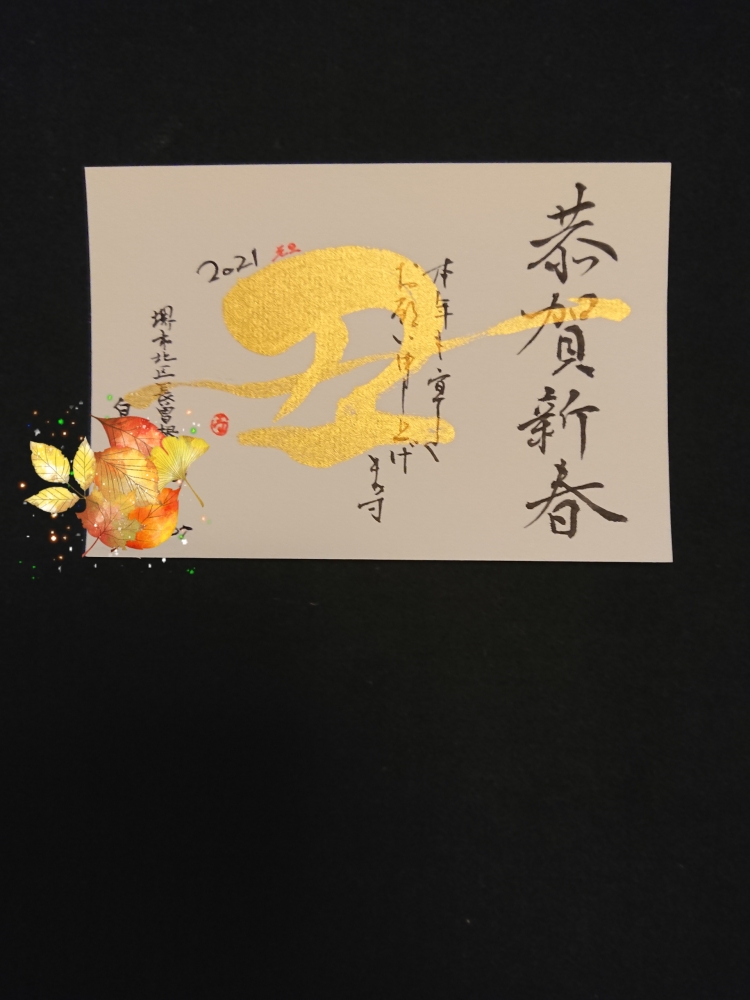 恭賀新春
本年も宜しく
お願い申し上げ
ます
丑
2021
元旦
堺市北区長曽根
白